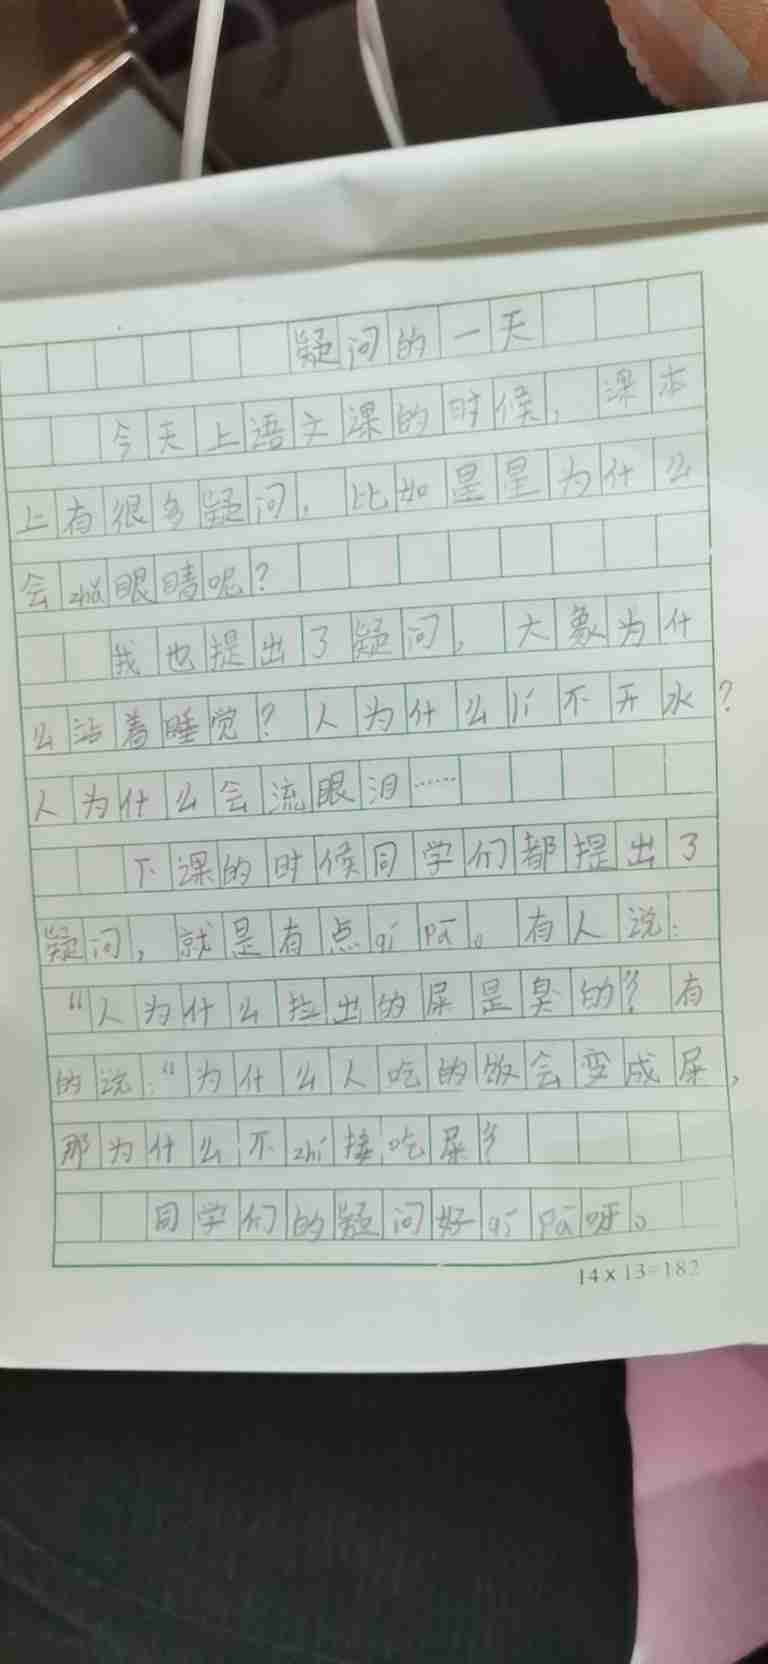 疑问的一天
今天上语文课的时候，课本
上有很多疑问，比如星星为什么
会zhǎ眼睛呢？
我也提出了疑问，大象为什
么站着睡觉？人为什么lí不开水？
人为什么会流眼泪……
下课的时候同学们都提出了
疑问，就是有点qí pā。有人说：
“人为什么拉出的屎是臭的？”有
的说：“为什么人吃的饭会变成屎，
那为什么不zhí接吃屎？”
同学们的疑问好qí pā呀。
14×13=182